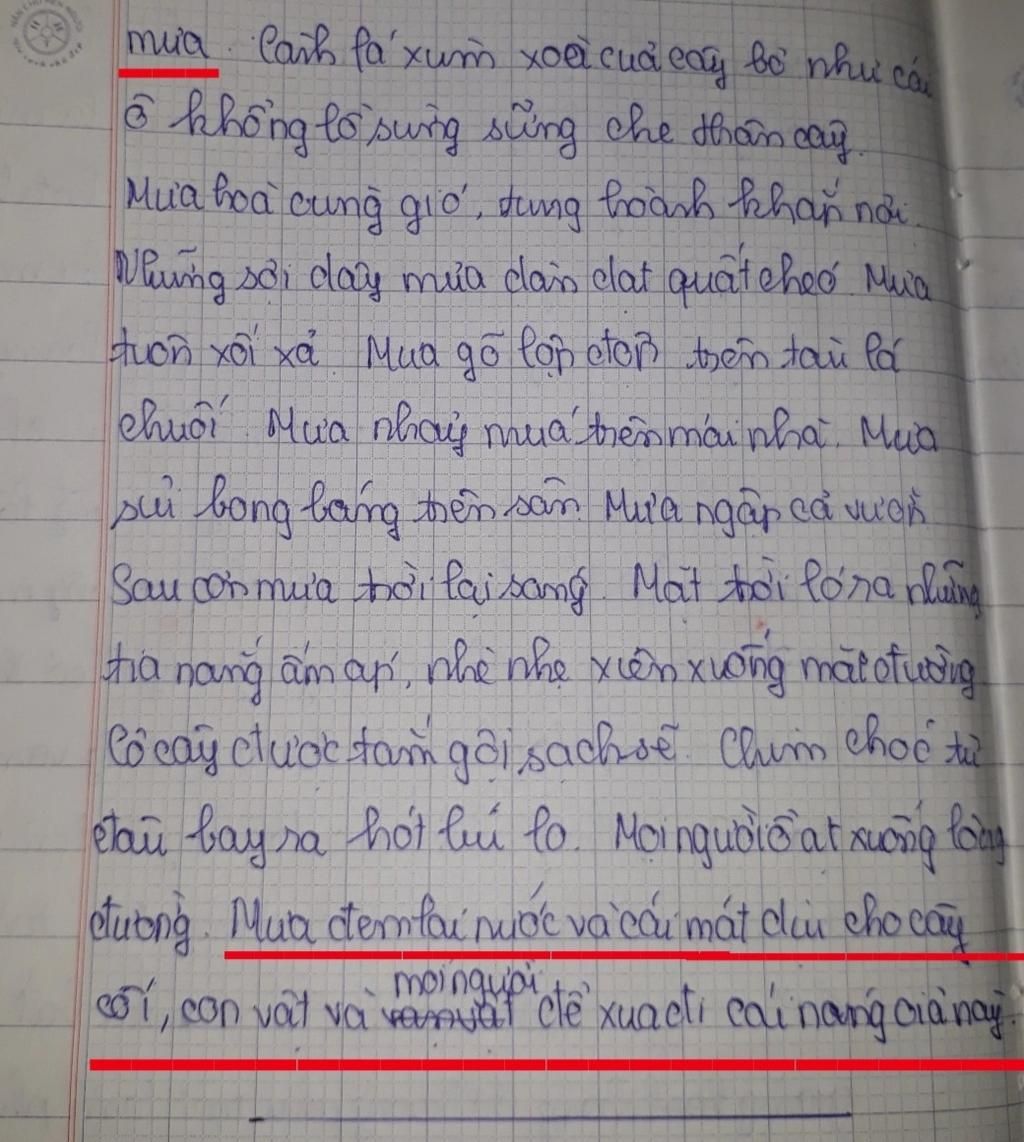 mưa. Cành lá xùm xoè của cây bỏ như cái
ô khổng lồ sừng sững che thân cây.
Mưa hoà cùng gió, tung hoành khắp nơi.
Những sợi dây mưa dàn dạt quất chéo. Mưa
tuôn xối xả. Mưa gõ lộp độp trên tàu lá
chuối. Mưa nhảy múa trên mái nhà. Mưa
sủi bong bóng trên sân. Mưa ngập cả vườn
Sau cơn mưa trời lại sáng. Mặt trời ló ra những
tia nắng ấm áp, nhè nhẹ xiên xuống mặt đường
Cỏ cây được tắm gội sạch sẽ. Chim chóc từ
đâu bay ra hót líu lo. Mọi người ồ ạt xuống lòng
đường. Mưa đem lại nước và cái mát dịu cho cây
cối, con vật và mọi người để xua đi cái nắng già này.